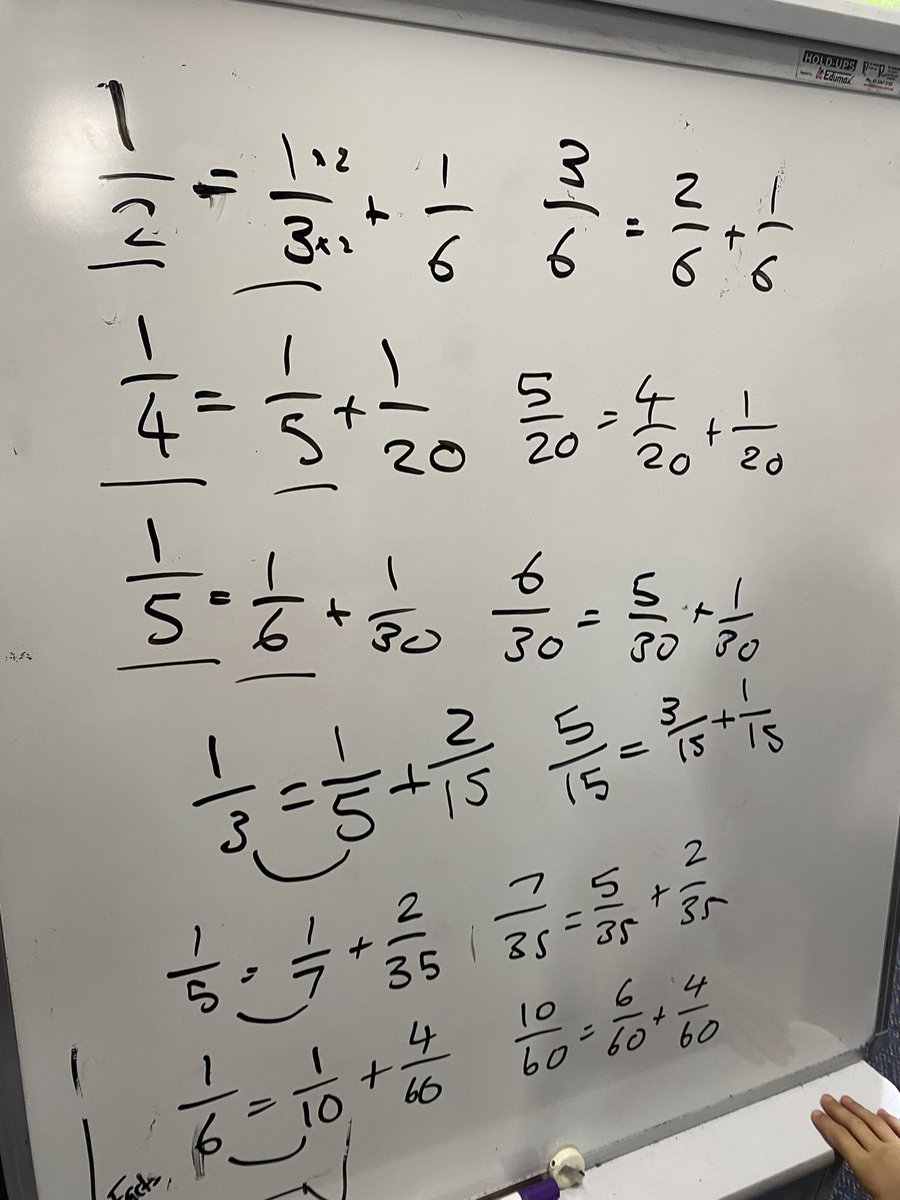 HOLD-UPS
Edumax
1/2 = 1×2/3×2 + 1/6 3/6 = 2/6 + 1/6
1/4 = 1/5 + 1/20 5/20 = 4/20 + 1/20
1/5 = 1/6 + 1/30 6/30 = 5/30 + 1/30
1/3 = 1/5 + 2/15 5/15 = 3/15 + 1/15
1/5 = 1/7 + 2/35 7/35 = 5/35 + 2/35
1/6 = 1/10 + 4/60 10/60 = 6/60 + 4/60